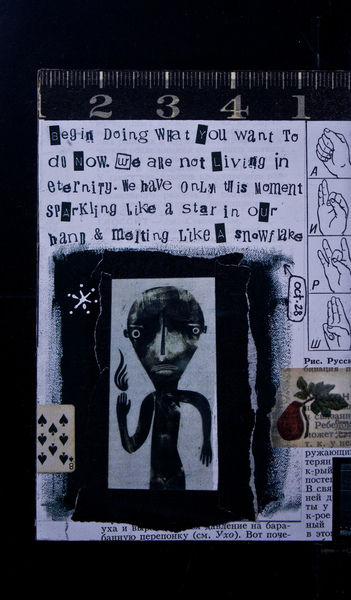 2 3 4 1
Begin Doing What You want To
do Now. We are not Living in
eternity. We have only this Moment
spArkling Like a star in our
hand & melting Like A snowflake
oct. 28
А
И
Р
Ш
Рис. Русск
бинация п
Ребе
может
т. к. у не
ружающим
терян
к-рый
постеп
В свя
ней д
ты у
к-рое
ный
в этом
8
уха и давление на бара-
банную перепонку (см. Ухо). Вот поче-